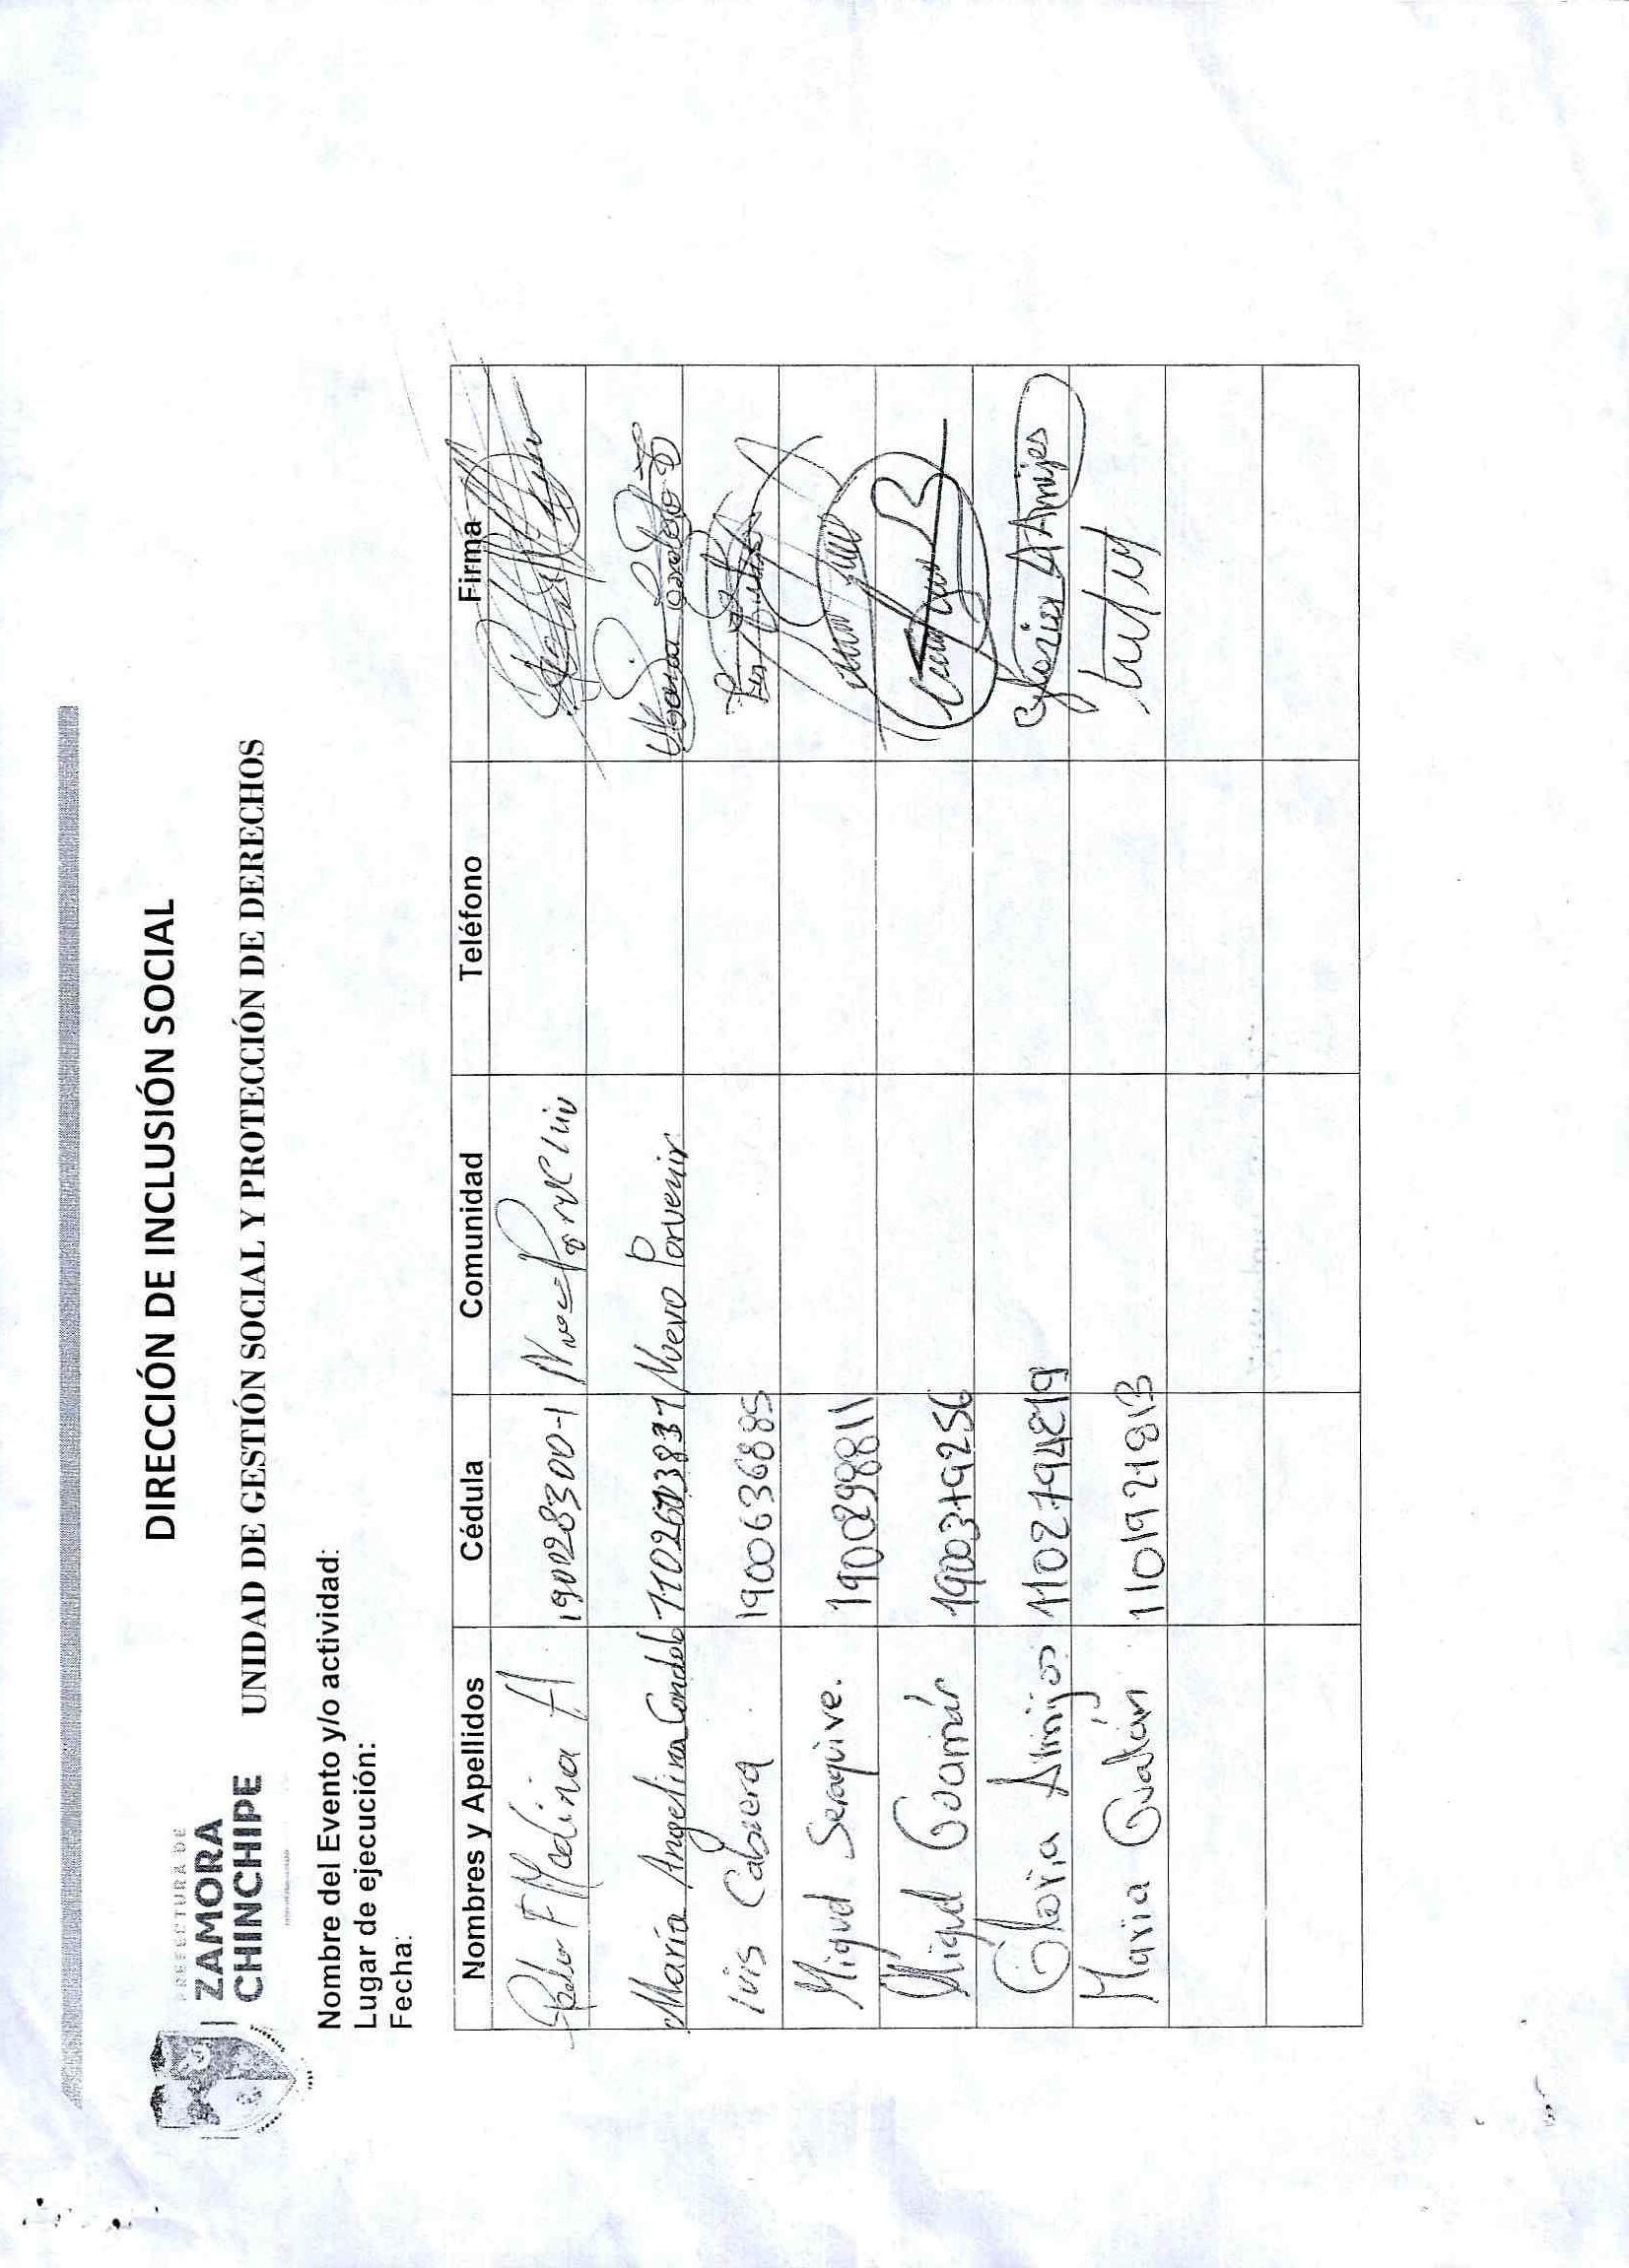 PREFECTURA DE
ZAMORA
CHINCHIPE
DIRECCIÓN DE INCLUSIÓN SOCIAL
UNIDAD DE GESTIÓN SOCIAL Y PROTECCIÓN DE DERECHOS
Nombre del Evento y/o actividad:
Lugar de ejecución:
Fecha:
Nombres y Apellidos Cédula Comunidad Teléfono Firma
F Medina A 190028300-1
María Angelina Condolo 1102603837 Nuevo Porvenir
Luis Cabrera 1900636885
Miguel Saraguro. 1900298811
Miguel Guamán 1900379256
Gloria Armijos 1102794819 Gloria A Armijos
Maria Gualán 110192181B